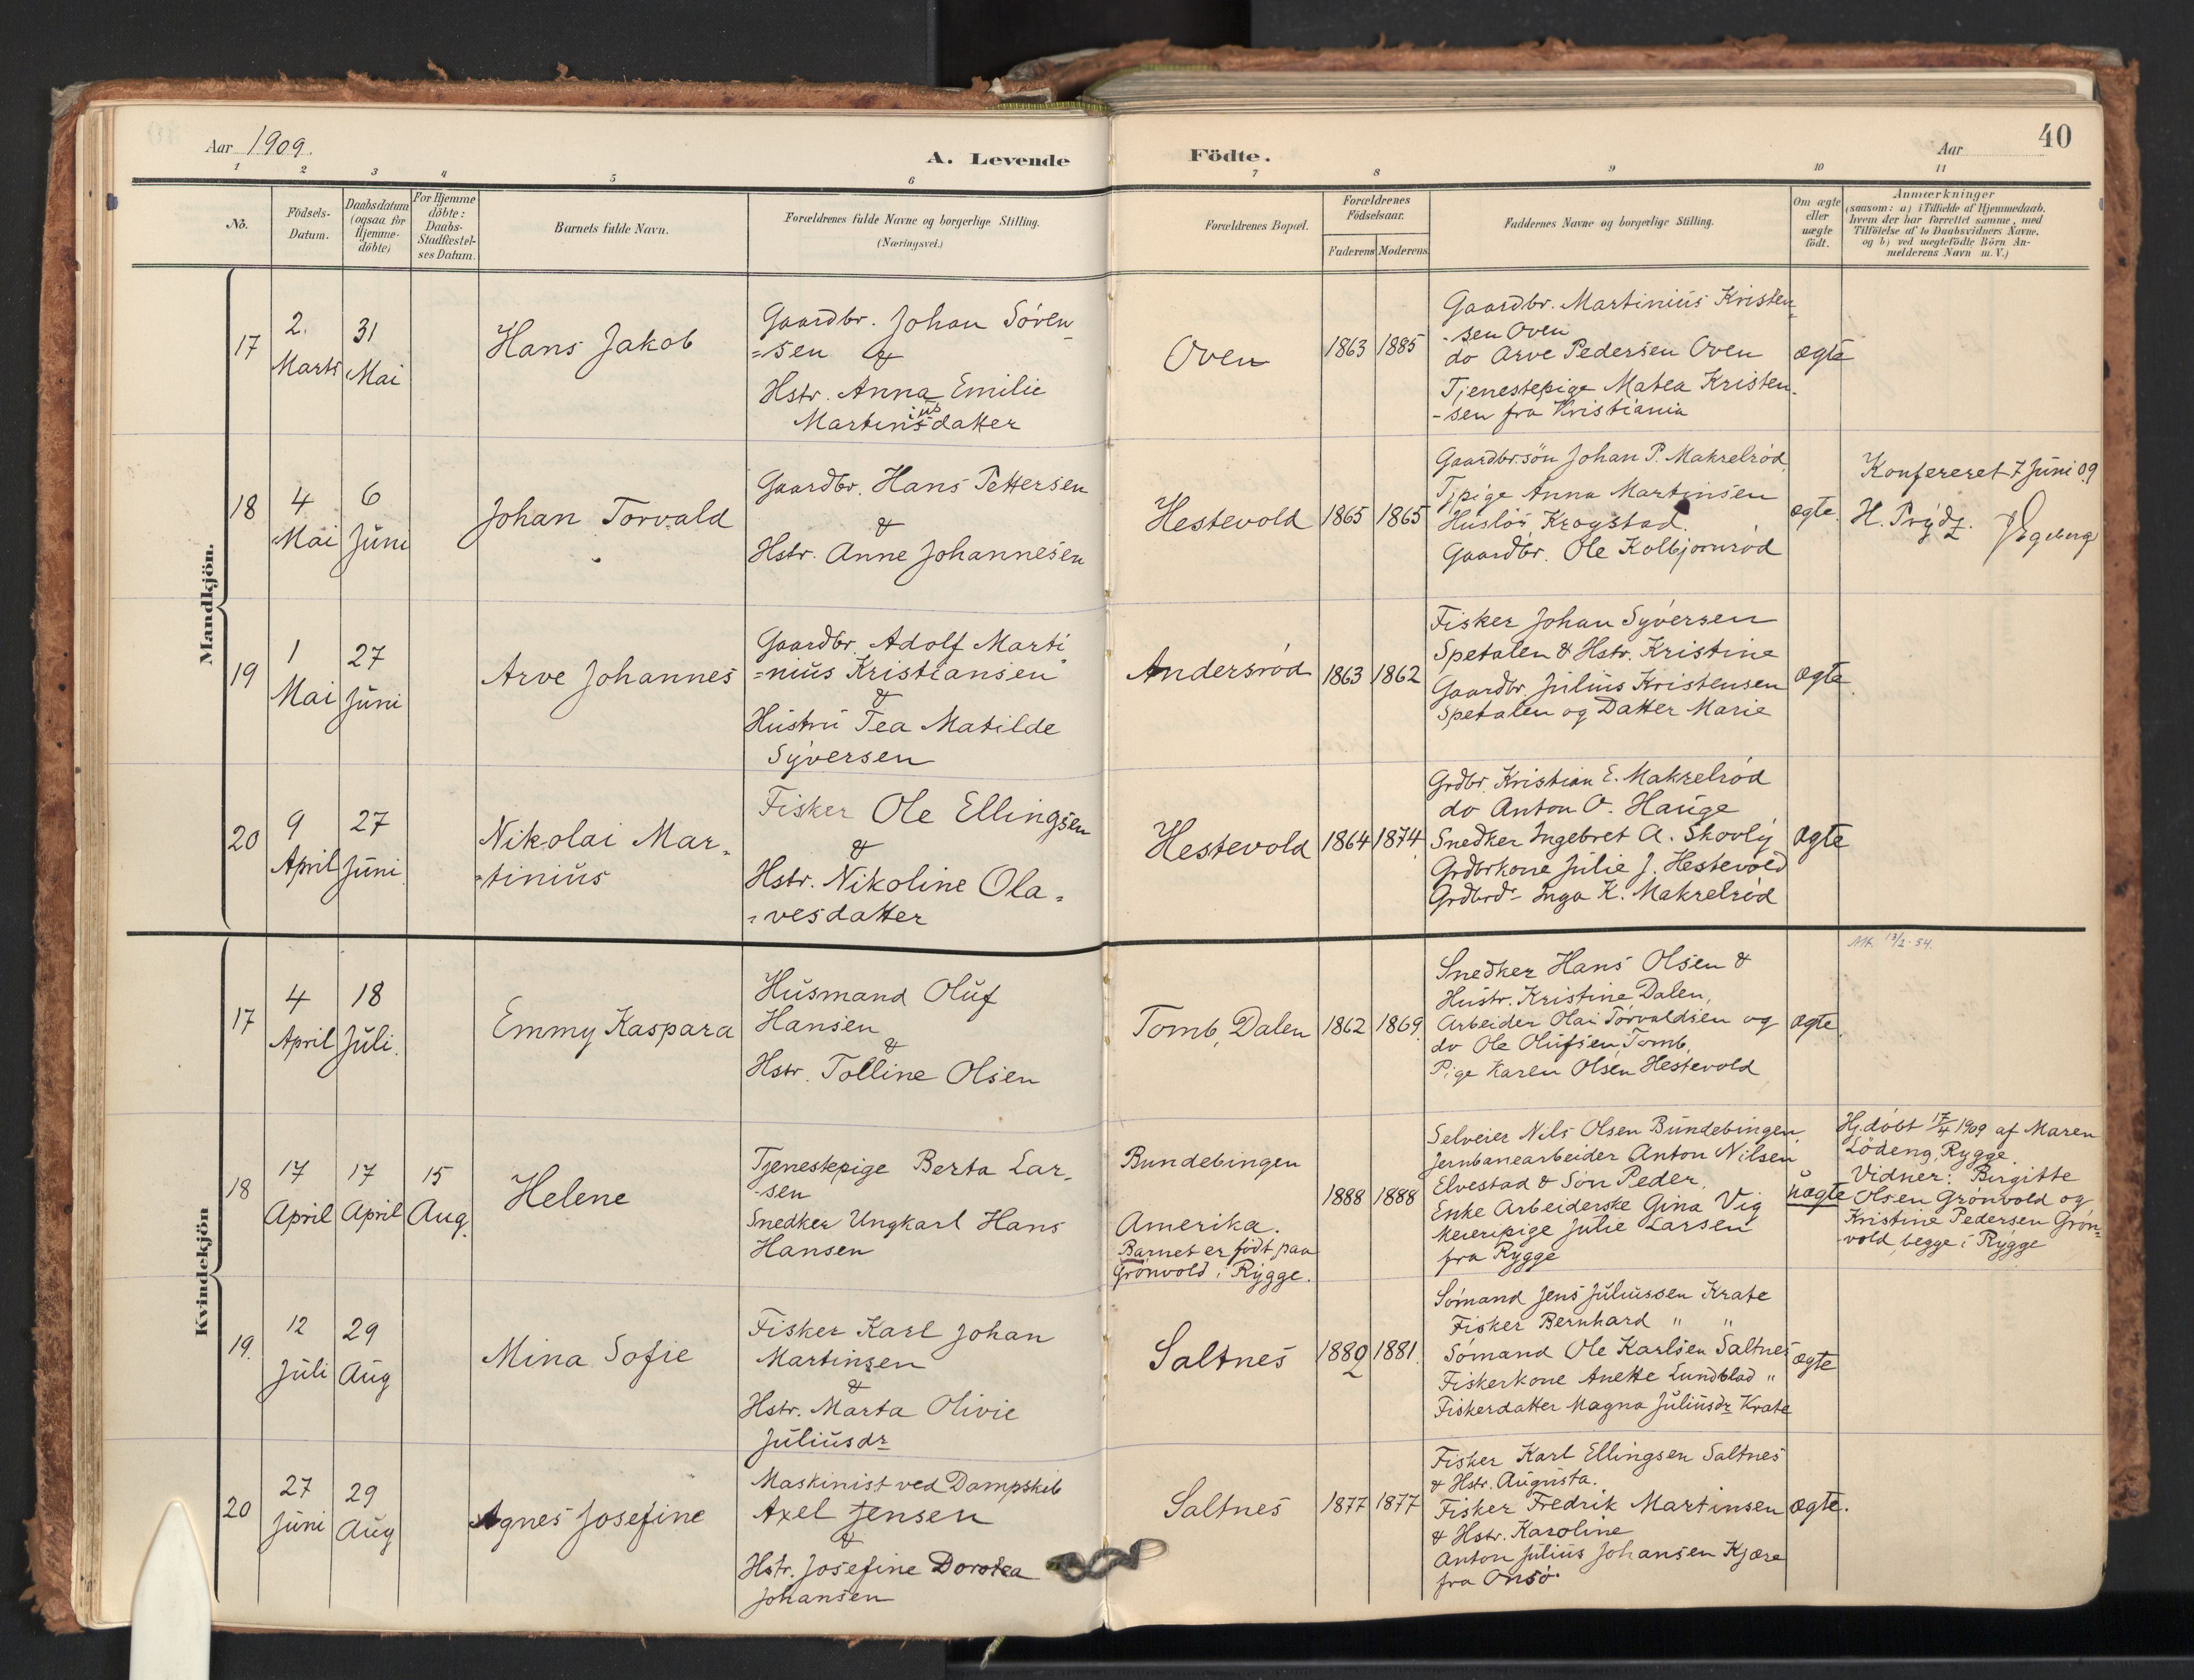 Aar 1909.
A. Levende
Födte.
Aar
40
1 2 3 4 5 6 7 8 9 10 11
No.
Födsels-
Datum.
Daabsdatum
(ogsaa for
Hjemme-
döbte)
For Hjemme
döbte:
Daabs-
Stadfæstel-
ses Datum.
Barnets fulde Navn.
Forældrenes fulde Navne og borgerlige Stilling.
(Næringsvei.)
Forældrenes Bopæl.
Forældrenes
Födselsaar.
Faderens Moderens
Faddernes Navne og borgerlige Stilling.
Om ægte
eller
uægte
födt.
Anmærkninger
(saasom: a) i Tilfælde af Hjemmedaab,
hvem der har forrettet samme, med
Tilföielse af to Daabsvidners Navne.
og b) ved uægtefödte Börn An-
melderens Navn m.V.)
Mandkjön.
17
2.
Marts
31
Mai
Hans Jakob
Gaardbr. Johan Sören-
=sen &
Hstr. Anna Emilie
ius
Martinsdatter
Oven
1863 1885
Gaardbr. Martinius Kristen-
-sen Oven
do Arve Pedersen Oven
Tjenestepige Matea Kristen-
-sen fra Kristiania
ægte
18
4
Mai
6
Juni
Johan Torvald
Gaardbr. Hans Pettersen
&
Hstr. Anne Johannesen
Hestevold
1865 1865
Gaardbr.sön Johan P. Makrelröd
Tjpige Anna Martinsen
Huslös Krogstad.
Gaardbr. Ole Kolbjørnröd
ægte.
Konfereret 7 Juni 09
H. Prydz. J Egeberg
19
1
Mai
27
Juni
Arve Johannes
Gaardbr. Adolf Marti
=nius Kristiansen
&
Hustru Tea Matilde
Syversen
Andersröd
1863 1862
Fisker Johan Syversen
Spetalen & Hstr. Kristine
Gaardbr. Julius Kristensen
Spetalen og Datter Marie
ægte.
20
9
April
27
Juni
Nikolai Mar-
-tinius
Fisker Ole Ellingsen
&
Hstr. Nikoline Ola=
=vesdatter
Hestevold
1864 1874
Grdbr. Kristian E. Makrelröd
do Anton O. Hauge
Snedker Ingebret A. Skovly
Grdbrkone Julie J. Hestevold
Grdbrdr Inga K. Makrelröd
ægte
Kvindekjön
17
4
April
18
Juli.
Emmy Kaspara
Husmand Oluf
Hansen
&
Hstr. Tolline Olsen
Tomb, Dalen
1862 1869
Snedker Hans Olsen &
Hustr. Kristine Dalen,
Arbeider Olai Torvaldsen og
do Ole Olufsen Tomb,
Pige Karen Olsen Hestevold
ægte.
18
17
April
17
April
15
Aug.
Helene
Tjenestepige Berta Lar-
-sen
Snedker Ungkarl Hans
Hansen
Bundebingen
Amerika.
Barnet er födt paa
Grönvold i Rygge.
1888 1888
Selveier Nils Olsen Bundebingen,
Jernbanearbeider Anton Nilsen
Elvestad & Sön Peder,
Enke Arbeiderske Gina Vig
Meieripige Julie Larsen
fra Rygge
uægte
Hj.döbt 17/4 1909 af Maren
Lödeng, Rygge
Vidner: Birgitte
Olsen Grönvold og
Kristine Pedersen Grön-
-vold begge i Rygge
19.
12
Juli
29
Aug
Mina Sofie
Fisker Karl Johan
Martinsen
&
Hstr. Marta Olivie
Juliusdr
Saltnes
1882 1881
Sömand Jens Juliussen Krate
Fisker Bernhard " "
Sömand Ole Karlsen Saltnes
Fiskerkone Anette Lundblad "
Fiskerdatter Magna Juliusdr Krate
ægte
20
27
Juni
29
Aug
Agnes Josefine
Maskinist ved Dampskib
Axel Jensen
&
Hstr. Josefine Dorotea
Johansen
Saltnes
1877 1877
Fisker Karl Ellingsen Saltnes
& Hstr. Augusta.
Fisker Fredrik Martinsen
& Hstr. Karoline
Anton Julius Johansen Kjære
fra Onsö.
ægte.